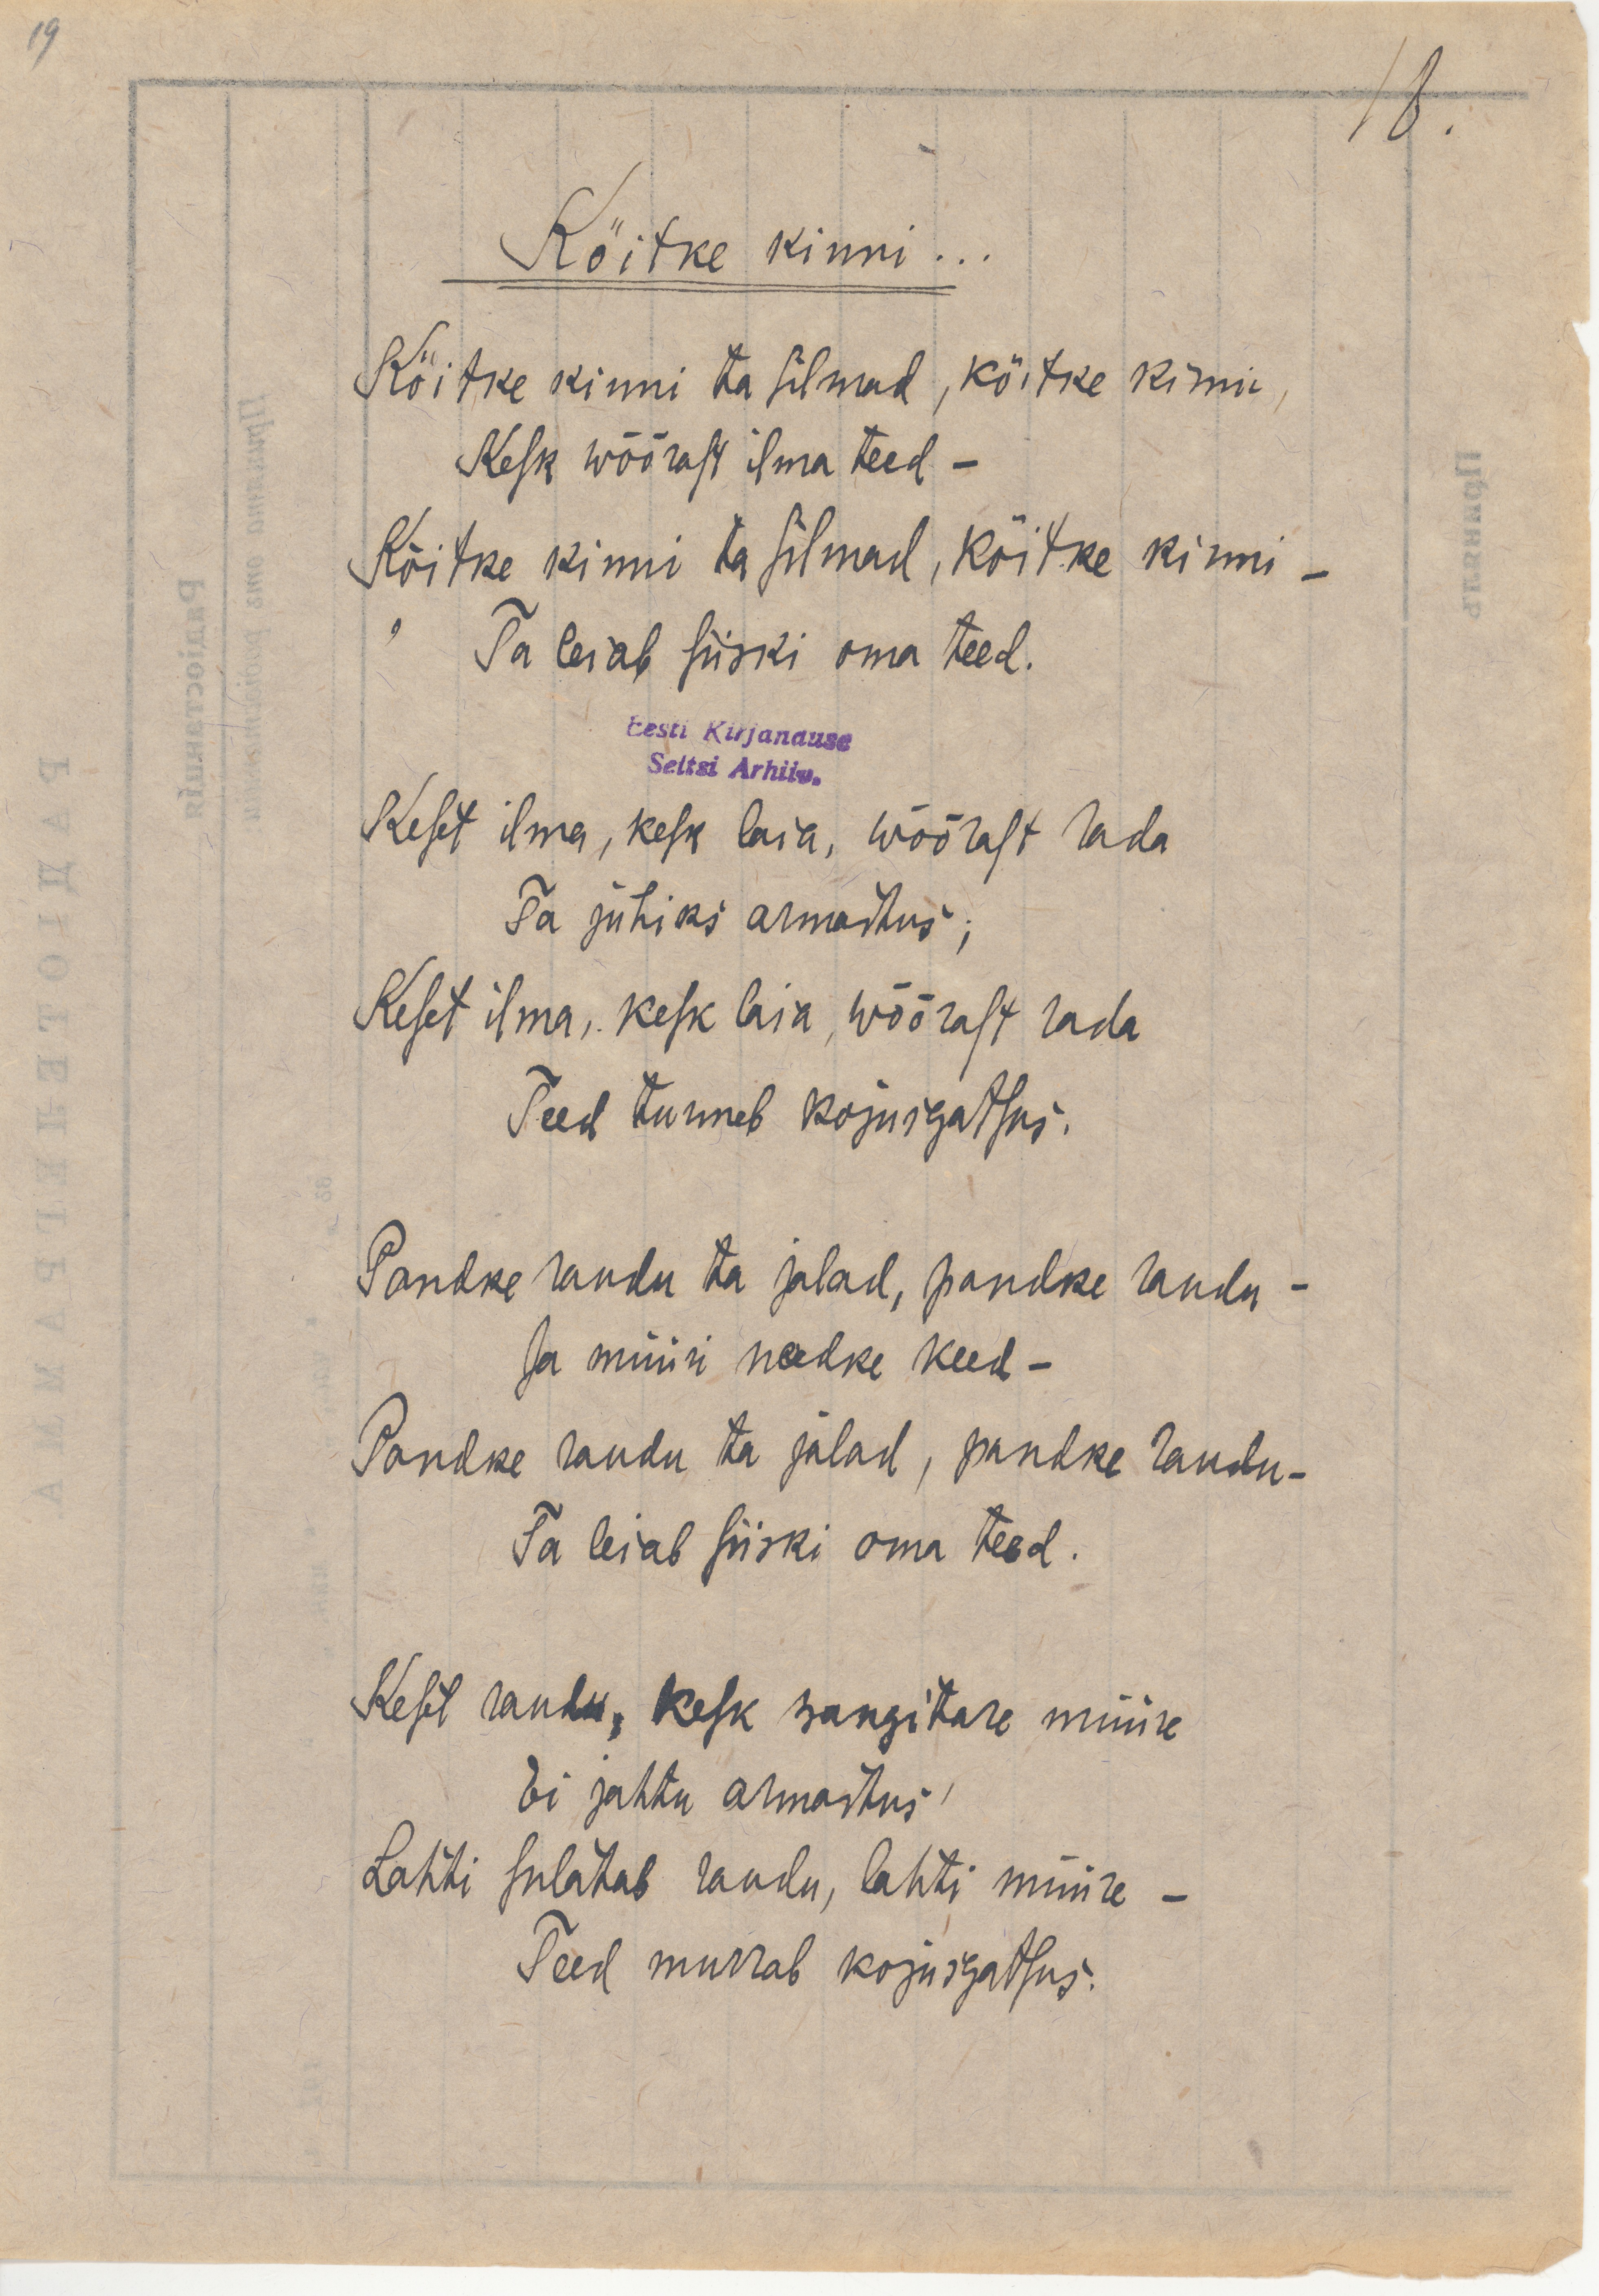 19
18.
Köitke kinni...
Köitke kinni ta silmad, köitke kinni,
Kesk wõõrast ilma teed –
Köitke kinni ta silmad, köitke kinni –
Ta leiab siiski oma teed.
Eesti Kirjanduse
Seltsi Arhiiv.
Keset ilma, kesk laia, wõõrast rada
Ta juhiks armastus;
Keset ilma, kesk laia, wõõrast rada
Teed tunneb kojuigatsus.
Pandke raudu ta jalad, pandke raudu –
Ja müüri needke keed –
Pandke raudu ta jalad, pandke raudu –
Ta leiab siiski oma teed.
Keset raudu, kesk wangitare müüre
Ei jahtu armastus,
Lahti sulatab raudu, lahti müüre –
Teed murrab kojuigatsus.